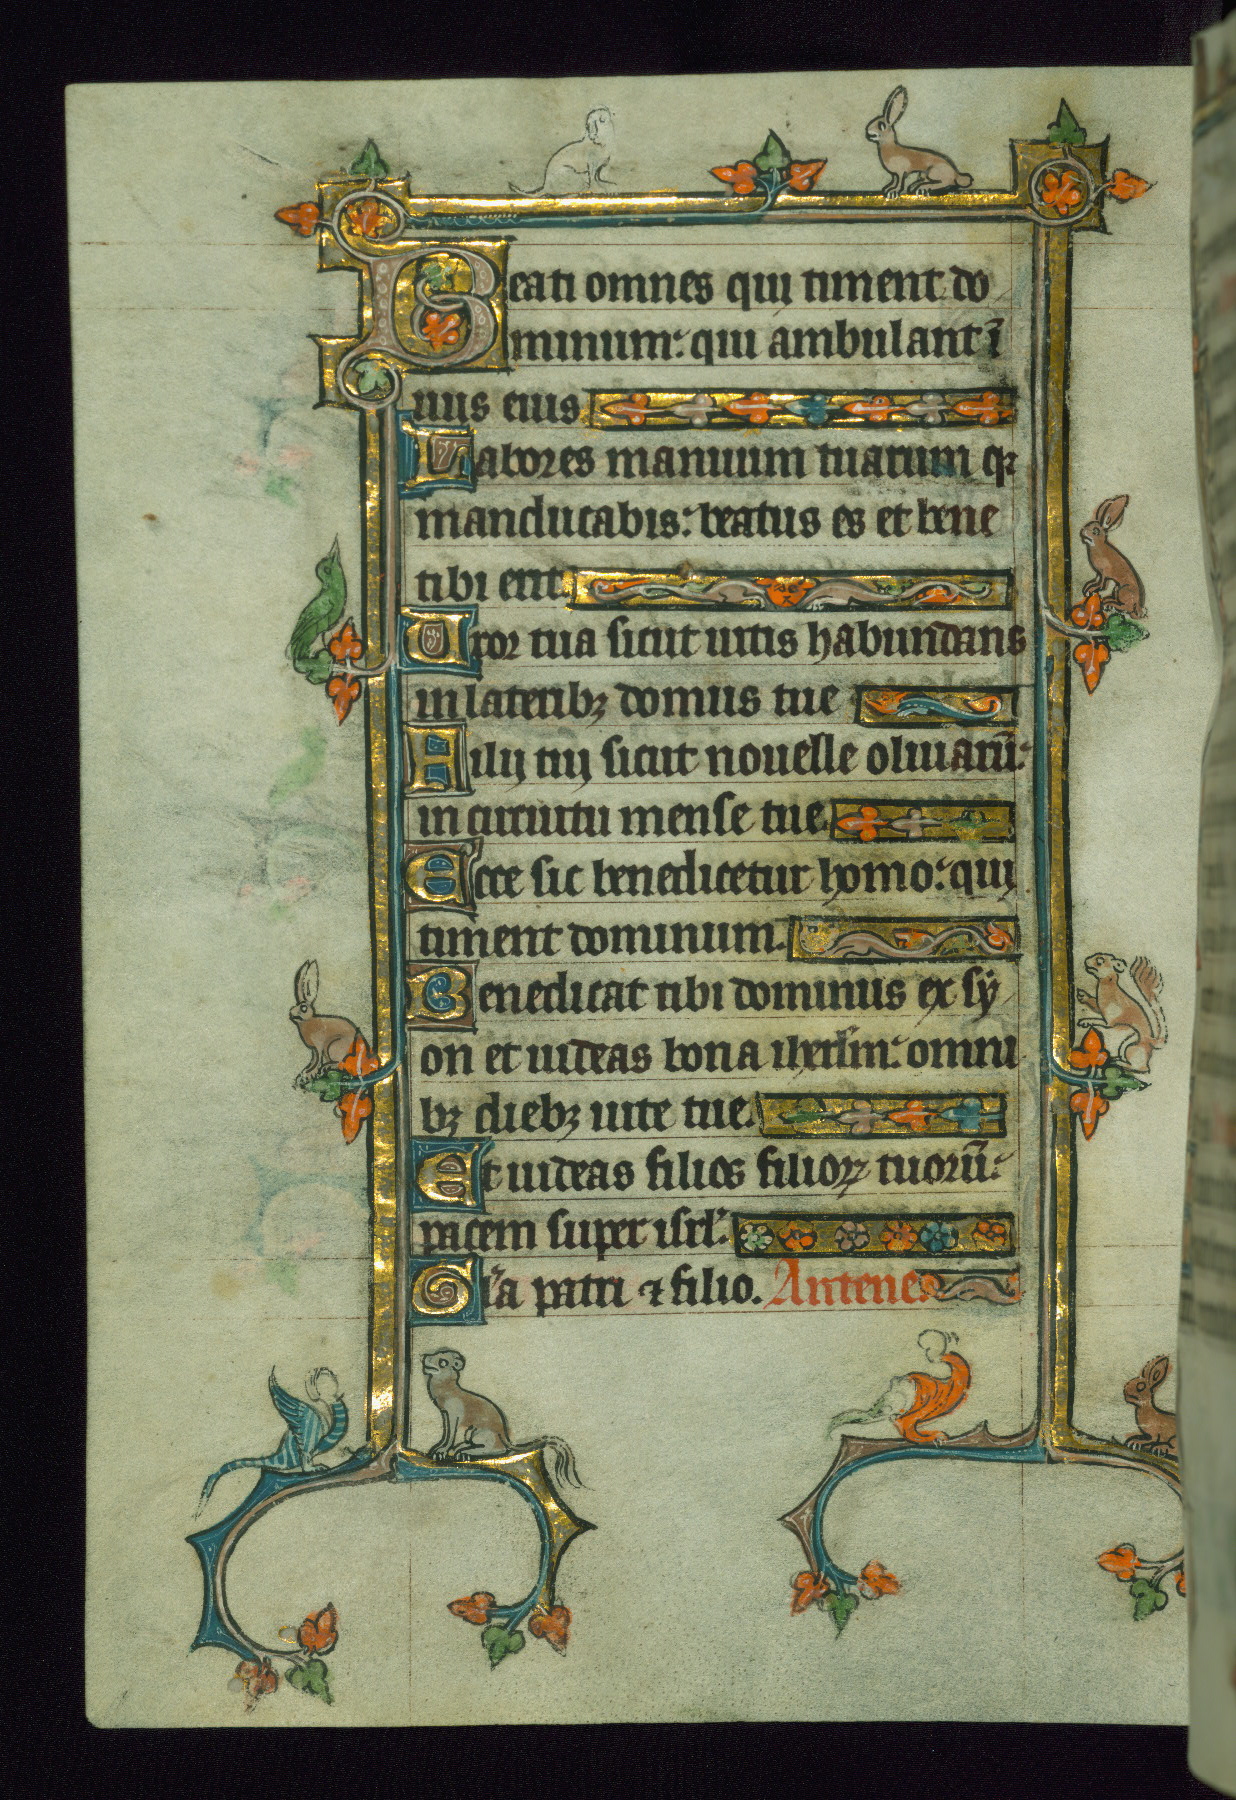 Beati omnes qui timent do
minum: qui ambulant ī
uiis eius
Labores manuum tuarum qꝛ
manducabis: beatus es et bene
tibi erit
Uxor tua sicut uitis habundans
in laterib⁊ domus tue
Filij tuj sicut nouelle oliuarū:
in circuitu mense tue
Ecce sic benedicetur homo: qui
timent dominum.
Benedicat tibi dominus ex sy
on et uideas bona iherl'm: omni
b⁊ dieb⁊ uite tue.
Et uideas filios filioꝝ tuorū:
pacem super isrl'.
Gl'a patri ⁊ filio. Antene.